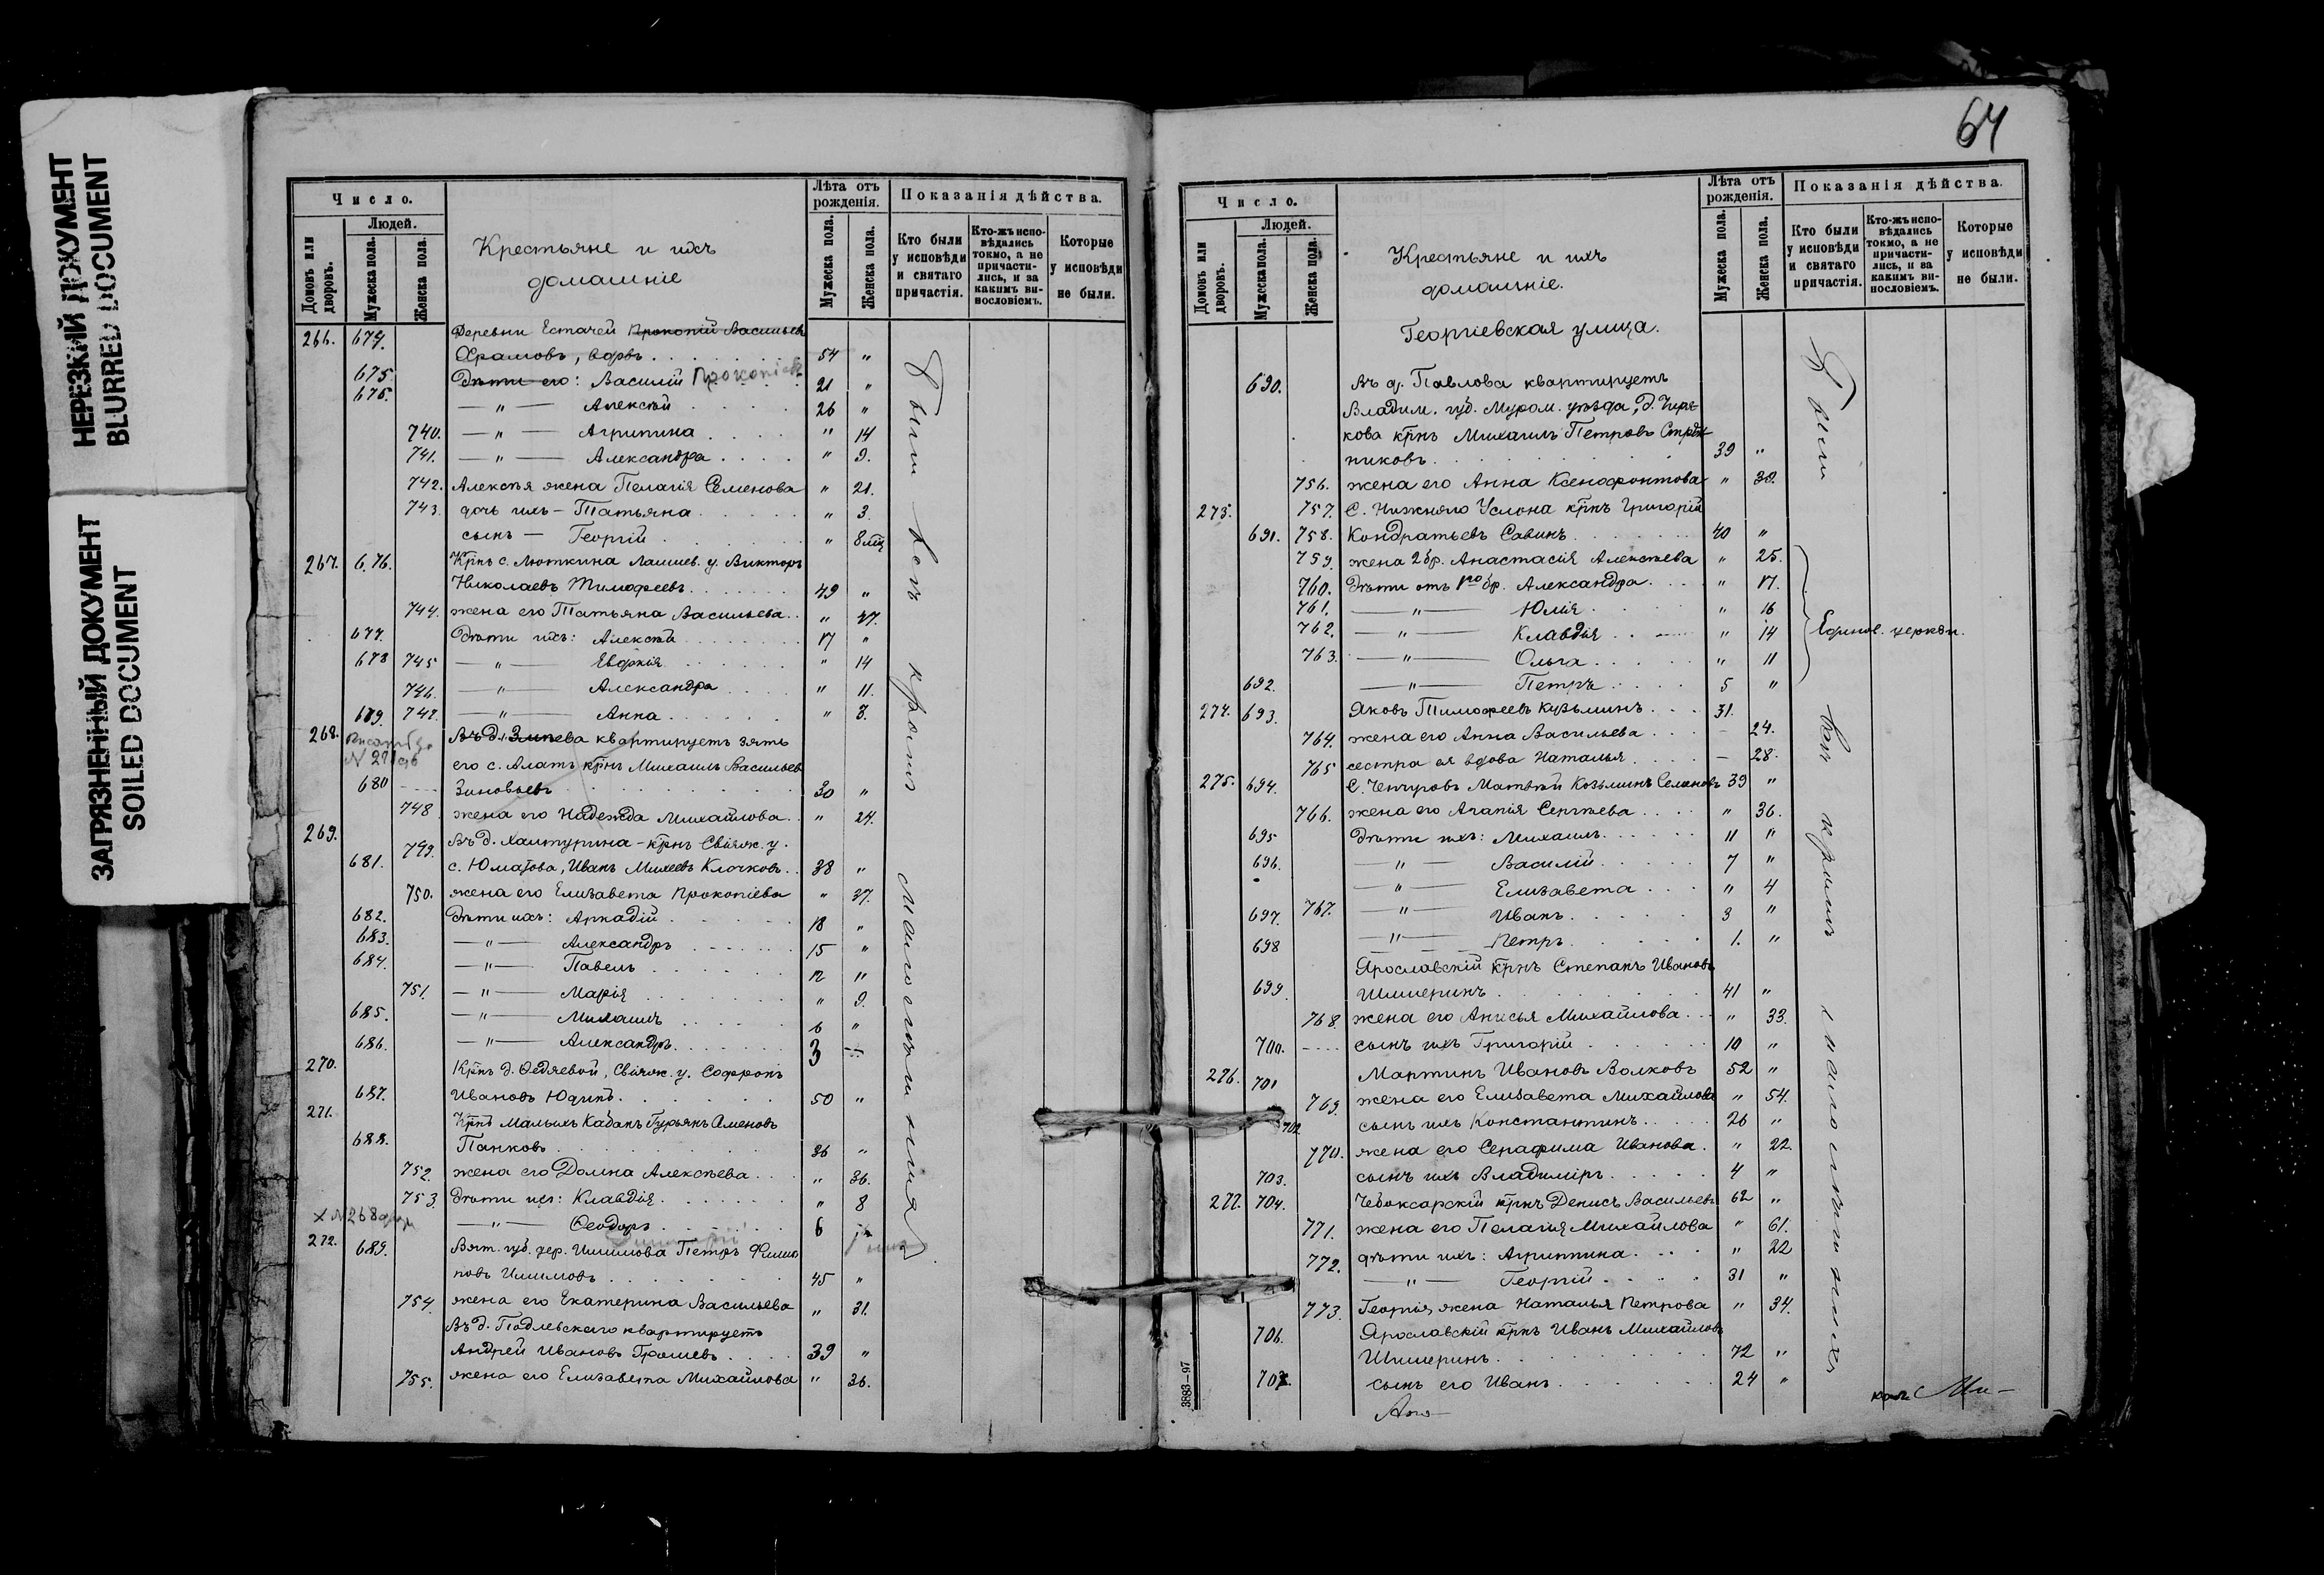 НЕРЕЗКИЙ ДОКУМЕНТ
BLURRED DOCUMENT
ЗАГРЯЗНЕННЫЙ ДОКУМЕНТ
SOILED DOCUMENT
Число.
Людей.
Домовъ или дворовъ.
Мужеска пола.
Женска пола.
Крестьяне и ихъ
домашніе
Лѣта отъ рожденія.
Мужеска пола.
Женска пола.
Показанія дѣйства.
Кто были у исповѣди и святаго причастія.
Кто-жъ исповѣдались токмо, а не причастились, и за какимъ винословіемъ.
Которые у исповѣди не были.
266. 674. Деревни Естачей Прокопій Васильевъ
Храмовъ, вдовъ 54 "
675. Дѣти его: Василій Прокопіевъ 21 "
675. — " — Алексѣй 26 "
740. — " — Агрипина " 14
741. — " — Александра " 9.
742. Алексѣя жена Пелагія Семенова " 21.
743. дочь ихъ – Татьяна " 3.
сынъ — Георгій " 8 мѣс
267. 676. Крнъ с. Люткина Лаишев. у. Викторъ
Николаевъ Тимофеевъ 49 "
744. жена его Татьяна Васильева " 47.
677. Дѣти ихъ: Алексѣй 17 "
678 745 — " — Евдокія " 14
746. — " — Александра " 11.
679. 747. — " — Анна " 3.
268. Въ д. Зинева квартируетъ зять
его с. Алатъ крнъ Михаилъ Васильевъ
680 Зиновьевъ 30 "
748 жена его Надежда Михайлова " 24.
269. 749. Въ д. Хантурина – крнъ Свіяж. у.
681. с. Юматова, Иванъ Михеевъ Клочковъ 38 "
750. жена его Елизавета Прокопіева " 37.
682. Дѣти ихъ: Аркадій 18 "
683. — " — Александръ 15 "
684. — " — Павелъ 12 "
751. — " — Марія " 9.
685. — " — Михаилъ 6 "
686. — " — Александръ 3
270. Крнъ д. Ѳедяевой, Свіяж. у. Софронъ
687. Ивановъ Юдинъ 50 "
271. Крнъ Малыхъ Кабанъ Гурьянъ Семеновъ
688. Панковъ 36 "
752. жена его Домна Алексѣева " 36.
753. Дѣти ихъ: Клавдія " 8
— " — Ѳеодоръ 6
272. 689. Вят. губ. дер. Ишимова Петръ Филип
повъ Ишимовъ 45 "
754. жена его Екатерина Васильева " 31.
Въ д. Подлевскаго квартируетъ
Андрей Ивановъ Грошевъ 39 "
755. жена его Елизавета Михайлова " 36.
Были всѣ кромѣ малолѣтнихъ
64
Число.
Людей.
Домовъ или дворовъ.
Мужеска пола.
Женска пола.
Крестьяне и ихъ
домашніе.
Лѣта отъ рожденія.
Мужеска пола.
Женска пола.
Показанія дѣйства.
Кто были у исповѣди и святаго причастія.
Кто-жъ исповѣдались токмо, а не причастились, и за какимъ винословіемъ.
Которые у исповѣди не были.
Георгіевская улица.
690. Въ д. Павлова квартируетъ
Владим. губ. Муром. уѣзда,
кова крнъ Михаилъ Петровъ
никовъ 39 "
756. жена его Анна Ксенофонтова " 38.
273. 757. С. Нижняго Услона крнъ Григорій
691. 758. Кондратьевъ Савинъ 40 "
759. жена 2 бр. Анастасія Алексѣева " 25.
760. Дѣти отъ 1го бр. Александра " 17.
761. — " — Юлія " 16
762. — " — Клавдія " 14
763. — " — Ольга " 11
692. — " — Петръ 5 "
Единов. церкви.
274. 693. Яковъ Тимофеевъ Кузьминъ 31.
764. жена его Анна Васильева – 24.
765 сестра ея вдова Наталья — 28.
275. 694. С. Ченчуровъ Матвѣй Козьминъ Селановъ 39 "
766. жена его Агапія Сергѣева " 36.
695 Дѣти ихъ: Михаилъ 11 "
696. — " — Василій 7 "
— " — Елизавета " 4
697. 767. — " — Иванъ 3 "
698 — " — Петръ 1. "
Ярославскій крнъ Степанъ Ивановъ
699. Шишеринъ 41 "
768. жена его Анисья Михайлова " 33.
700. сынъ ихъ Григорій 10 "
276. 701 Мартинъ Ивановъ Волковъ 52 "
769. жена его Елизавета Михайлова " 54.
702. сынъ ихъ Константинъ 26 "
770. жена его Серафима Иванова " 22.
703. сынъ ихъ Владиміръ 4 "
277. 704. Чебоксарскій крнъ Денисъ Васильевъ 62 "
771. жена его Пелагія Михайлова " 61.
772. дѣти ихъ: Агриппина " 22
— " — Георгій 31 "
773. Георгія жена Наталья Петрова " 34.
706. Ярославскій крнъ Иванъ Михайловъ
Шишеринъ 72 "
707. сынъ его Иванъ 24 "
Были всѣ кромѣ малолѣтнихъ
3883—97